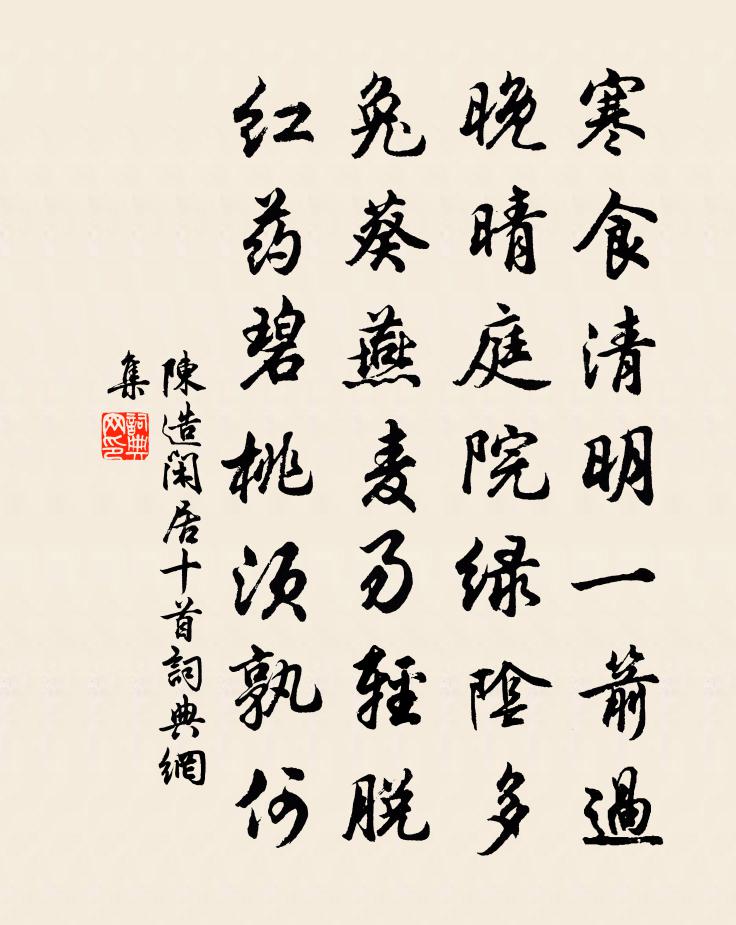 寒食清明一箭過
晚晴庭院緑陰多
兔葵燕麦易輕脱
紅药碧桃須孰何
陳造閑居十首詞典網
集
詞典
网印